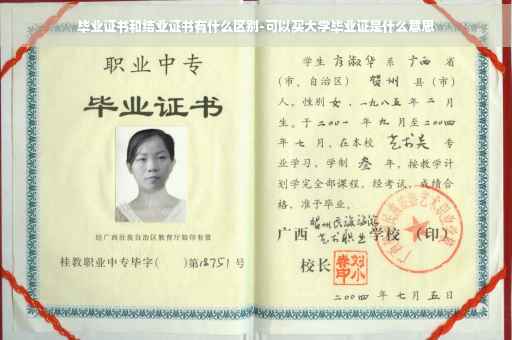 毕业证书和结业证书有什么区别-可以买大学毕业证是什么意思
职业中专
毕业证书
经广西壮族自治区教育厅验印有效
桂教职业中专毕字( )第13751号
学生方淑华系广西省
(市、自治区)贺州县(市)
人,性别女,一九八五年二月
生,于二〇〇一年九月至二〇〇四
年七月,在本校艺术美专
业学习,学制叁年,按教学计
划学完全部课程,经考试,成绩合
格,准予毕业。
贺州民族旅游
广西艺术职业学校(印)
校长
二〇〇四年七月五日